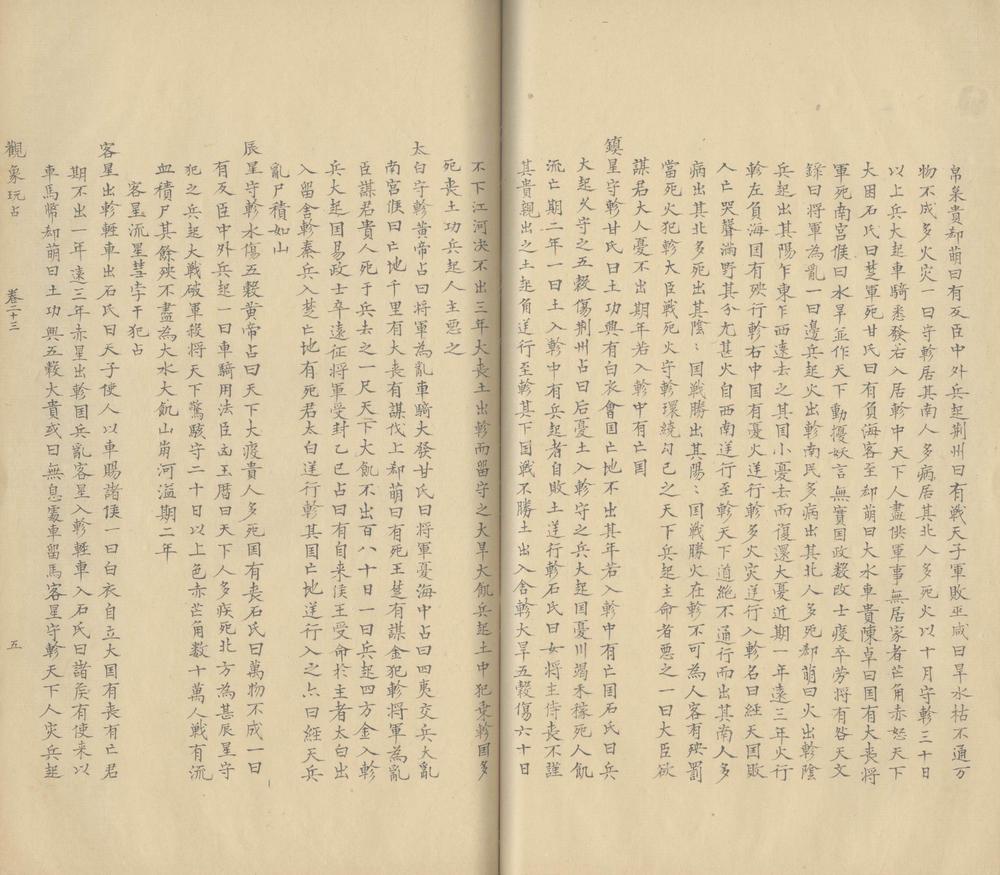 帛米貴却萌曰有反臣中外兵起荆州曰有戰天子軍敗巫咸曰旱水枯不通万
物不成多火灾一曰守軫居其南人多病居其北人多死火以十月守軫三十日
以上兵大起車騎悉發若入居軫中天下人盡供軍事無居家者芒角赤怒天下
大困石氏曰楚軍死甘氏曰有負海客至却萌曰大水車貴陳卓曰国有大丧将
軍死南宮候曰水旱並作天下動擾妖言無實国政數改士疫卒勞将有咎天文
録曰将軍為亂一曰邊兵起火出軫南民多病出其北人多死却萌曰火出軫陰
兵起出其陽乍東乍西遠去之其国小憂去而復還大憂近期一年遠三年火行
軫左負海国有殃行軫右中国有憂火逆行軫多火灾逆行入軫名曰經天国敗
人亡哭聲滿野其分尤甚火自西南逆行至軫天下道絶不通行而出其南人多
病出其北多死出其陰〻国戰勝出其陽〻国戰勝火在軫不可為人客有殃罰
當死火犯軫大臣戰死火守軫環繞勾己之天下兵起主命者悪之一曰大臣欲
謀君大人憂不出期年若入軫中有亡国
鎮星守軫甘氏曰土功興有白衣會国亡地不出其年若入軫中有亡国石氏曰兵
大起火守之五穀傷荆州占曰后憂土入軫守之兵大起国憂川竭禾稼死人飢
流亡期二年一曰土入軫中有兵起者自敗土逆行軫石氏曰女将主侍丧不謹
其貴親出之土起角逆行至軫其下国戰不勝土出入舍軫大旱五穀傷六十日
不下江河决不出三年大丧土出軫而留守之大旱大飢兵起土中犯乗軫国多
死丧土功兵起人主悪之
太白守軫黄帝占曰将軍為亂車騎大發甘氏曰将軍憂海中占曰四夷交兵大亂
南宮候曰亡地千里有大丧有謀伐上却萌曰有死王楚有謀金犯軫将軍為亂
臣謀君貴人死于兵去之一尺天下大飢不出百八十日一曰兵起四方金入軫
兵大起国易政士卒遠征将軍受封乙巳占曰有自来侯王受命於主者太白出
入留舍軫秦兵入楚亡地有死君太白逆行軫其国亡地逆行入之亦曰經天兵
亂尸積如山
辰星守軫水傷五穀黄帝占曰天下大疫貴人多死国有丧石氏曰萬物不成一曰
有反臣中外兵起一曰車騎用法臣凶玉暦曰天下人多疾死北方為甚辰星守
犯之兵起大戰破軍殺将天下驚駭守二十日以上色赤芒角数十萬人戰有流
血積尸其餘殃不盡為大水大飢山崩河溢期二年
客星流星彗孛干犯占
客星出軫軽車出石氏曰天子使人以車賜諸侯一曰白衣自立大国有丧有亡君
期不出一年遠三年赤星出軫国兵亂客星入軫軽車入石氏曰諸侯有使来以
車馬幣却萌曰土功興五穀大貴或曰無息處車留馬客星守軫天下人灾兵起
觀象玩占
卷二十三
五